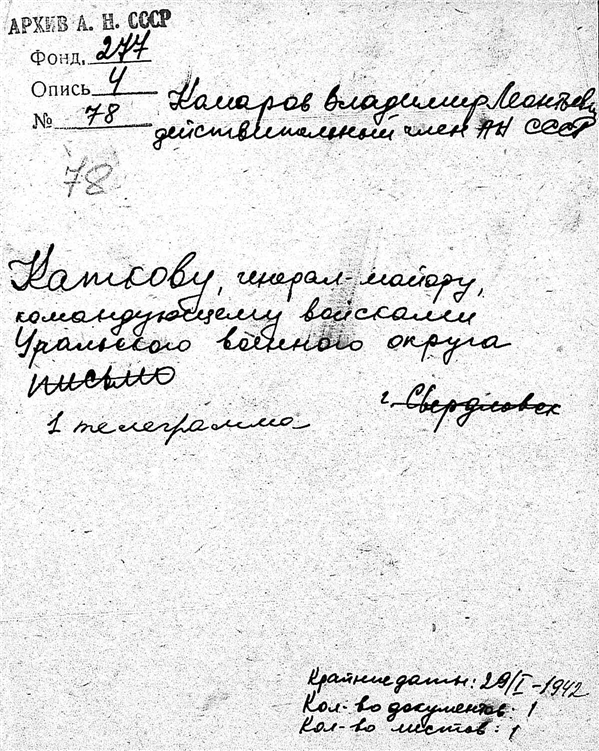 АРХИВ А. Н. СССР
Фонд. 277
Опись 4
№ 78
Комаров Владимир Леонтьевич
действительный член АН СССР
78
Каткову, генерал-майору,
командующему войсками
Уральского военного округа
письмо
г. Свердловск
1 телеграмма
Крайние даты: 29/I-1942
Кол-во документов: 1
Кол-во листов: 1